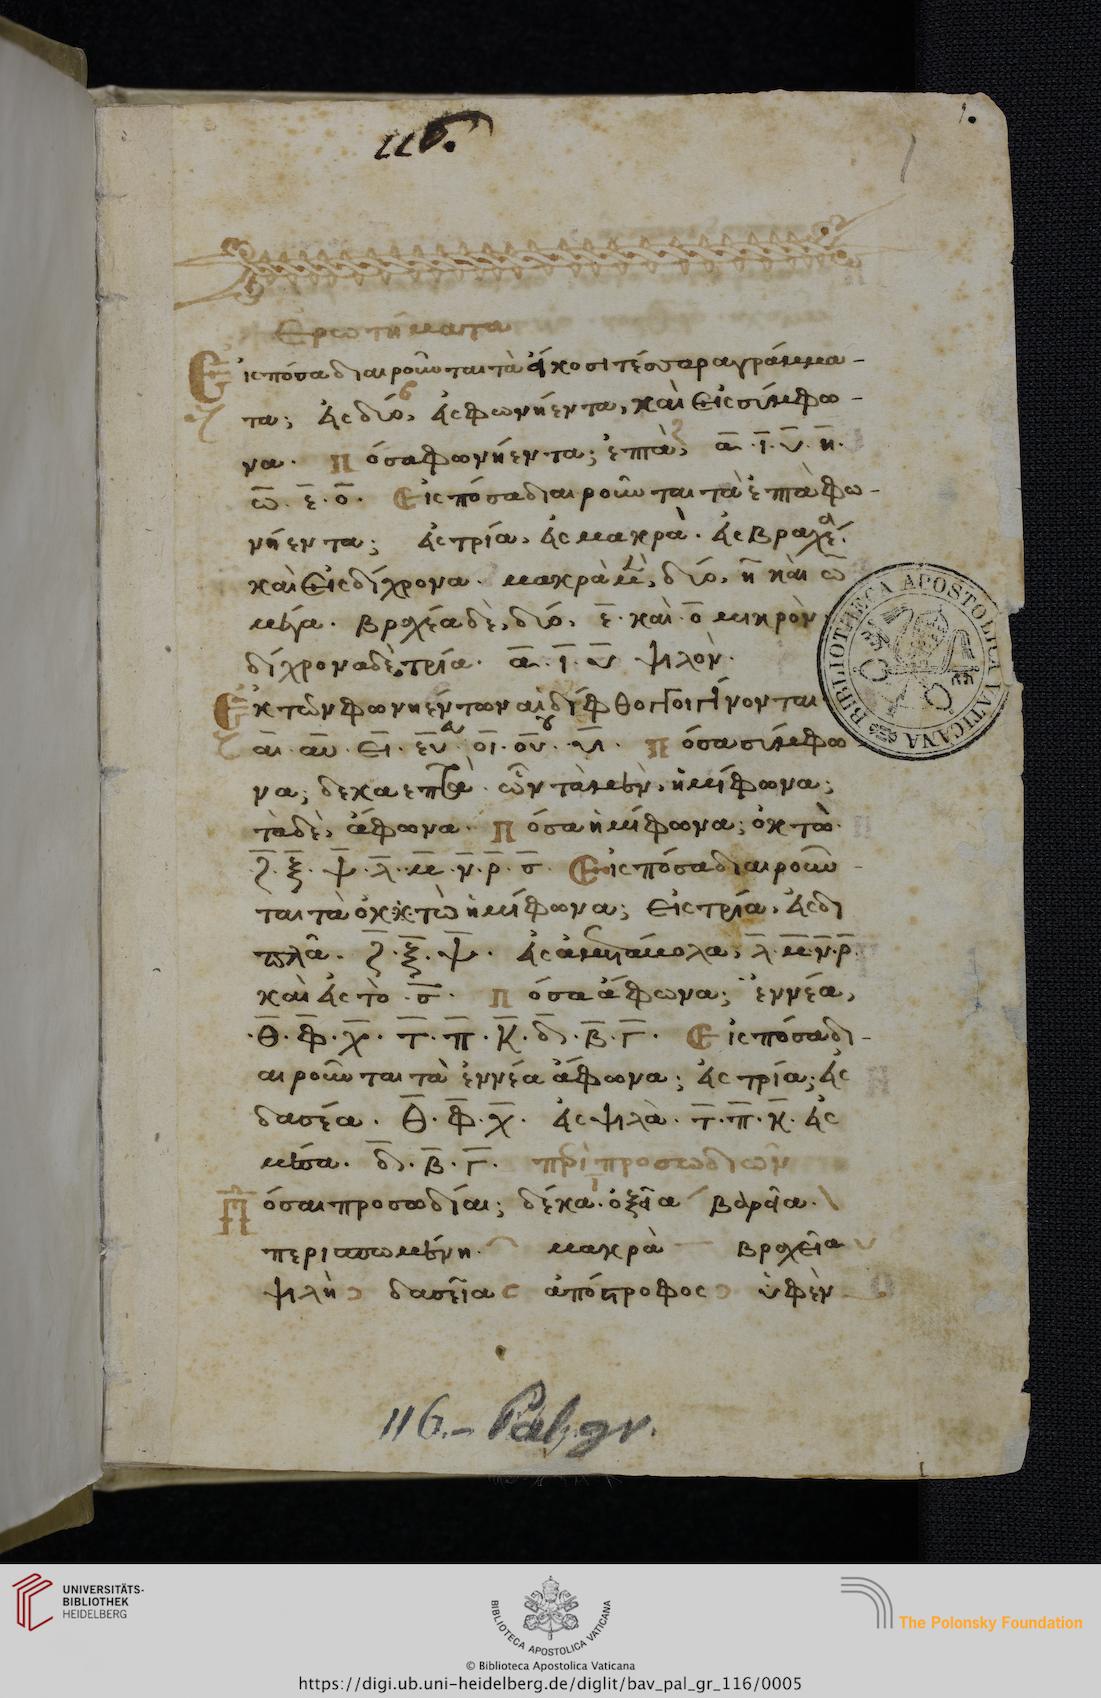 116.
1.
1
Ἐρωτήματα
Εἰς πόσα διαιροῦνται τὰ εἴκοσι τέσσαρα γράμμα-
τα; εἰς δύο, εἰς φωνήεντα, καὶ εἰς σύμφω-
να. Πόσα φωνήεντα; ἑπτὰ, α. ι. υ. η.
ω. ε. ο. Εἰς πόσα διαιροῦνται τὰ ἑπτὰ φω-
νήεντα; εἰς τρία, εἰς μακρὰ. εἰς βραχέα.
καὶ εἰς δίχρονα. μακρὰ μὲν, δύο, η καὶ ω
μέγα. βραχέα δὲ, δύο, ε. καὶ ο μικρὸν
δίχρονα δὲ τρία. α. ι. υ ψιλὸν.
Ἐκ τῶν φωνηέντων αἱ δίφθογγοι γίνονται
αι. αυ. ει. ευ. οι. ου. υι. Πόσα σύμφω
να; δεκαεπτὰ. ὧν τὰ μὲν, ἡμίφωνα;
τὰ δὲ, ἄφωνα. Πόσα ἡμίφωνα; ὀκτὼ.
ζ. ξ. ψ. λ. μ. ν. ρ. σ. Εἰς πόσα διαιροῦν-
ται τὰ ὀκτὼ ἡμίφωνα; εἰς τρία. εἰς δι
πλᾶ. ζ. ξ. ψ. εἰς ἀμετάβολα, λ. μ. ν. ρ.
καὶ εἰς τὸ. σ. Πόσα ἄφωνα; ἐννέα,
θ. φ. χ. τ. π. κ. δ. β. γ. Εἰς πόσα δι-
αιροῦνται τὰ ἐννέα ἄφωνα; εἰς τρία; εἰς
δασέα. θ. φ. χ. εἰς ψιλὰ. τ. π. κ. εἰς
μέσα. δ. β. γ. περὶ προσωδιῶν
Πόσαι προσωδίαι; δέκα. ὀξεῖα ´ βαρεῖα. \
περισπωμένη. ῀ μακρὰ ¯ βραχεῖα ˘
ψιλὴ ᾿ δασεῖα ῾ ἀπόστροφος ᾿ ὑφὲν ‿
116.- Pal. gr.
BIBLIOTHECA APOSTOLICA VATICANA
UNIVERSITÄTS-
BIBLIOTHEK
HEIDELBERG
BIBLIOTECA APOSTOLICA VATICANA
The Polonsky Foundation
© Biblioteca Apostolica Vaticana
https://digi.ub.uni-heidelberg.de/diglit/bav_pal_gr_116/0005